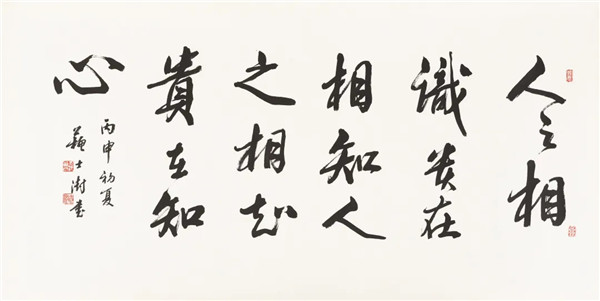 人之相
識贵在
相知人
之相知
貴在知
心
丙申初夏
蘇士澍書